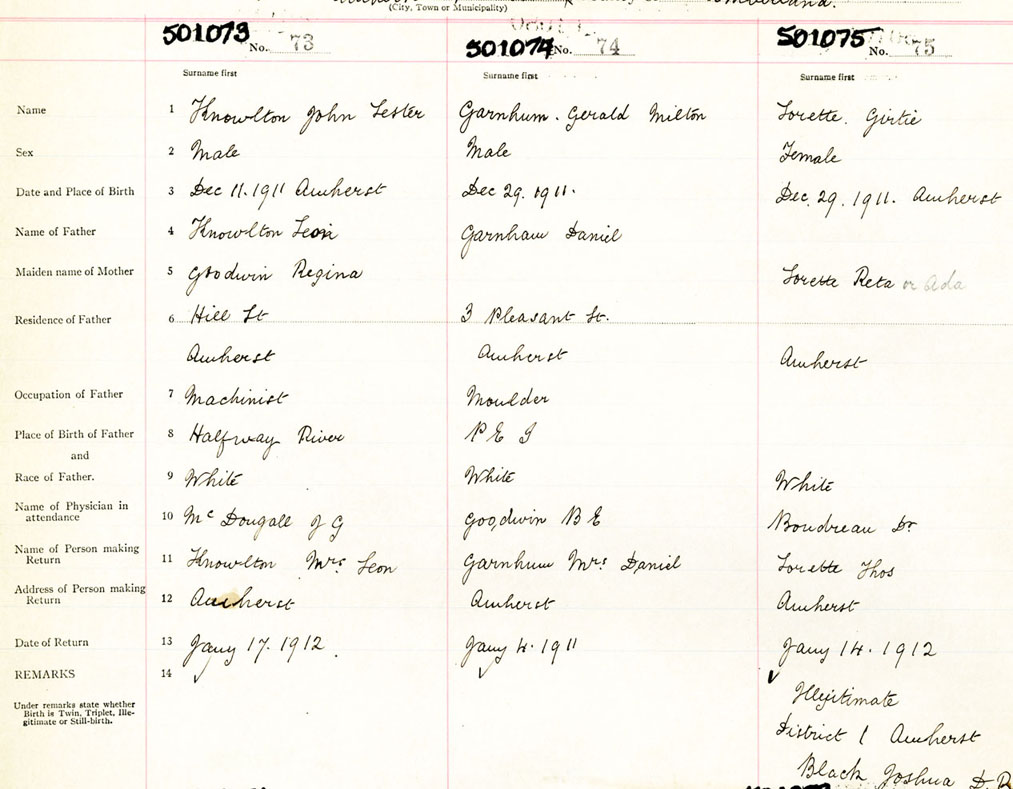 (City, Town or Municipality)
501073 No. 73 501074 No. 74 501075 No. 75
Surname first Surname first Surname first
Name 1 Knowlton John Lester Garnhum. Gerald Milton Lorette. Girtie
Sex 2 Male Male Female
Date and Place of Birth 3 Dec 11. 1911 Amherst Dec 29. 1911. Dec. 29. 1911. Amherst
Name of Father 4 Knowlton Leon Garnham Daniel
Maiden name of Mother 5 Goodwin Regina Lorette Reta or Ada
Residence of Father 6 Hill St 3 Pleasant St.
Amherst Amherst Amherst
Occupation of Father 7 Machinist Moulder
Place of Birth of Father 8 Halfway River P E I
and
Race of Father. 9 White White White
Name of Physician in
attendance 10 Mc Dougall J G Goodwin B E Boudreau Dr
Name of Person making
Return 11 Knowlton Mrs. Leon Garnhum Mrs Daniel Lorette Thos
Address of Person making
Return 12 Amherst Amherst Amherst
Date of Return 13 Jany 17. 1912. Jany 4. 1911 Jany 14. 1912
REMARKS 14
Under remarks state whether
Birth is Twin, Triplet, Ille-
gitimate or Still-birth.
Illegitimate
District 1 Amherst
Black Joshua D.R